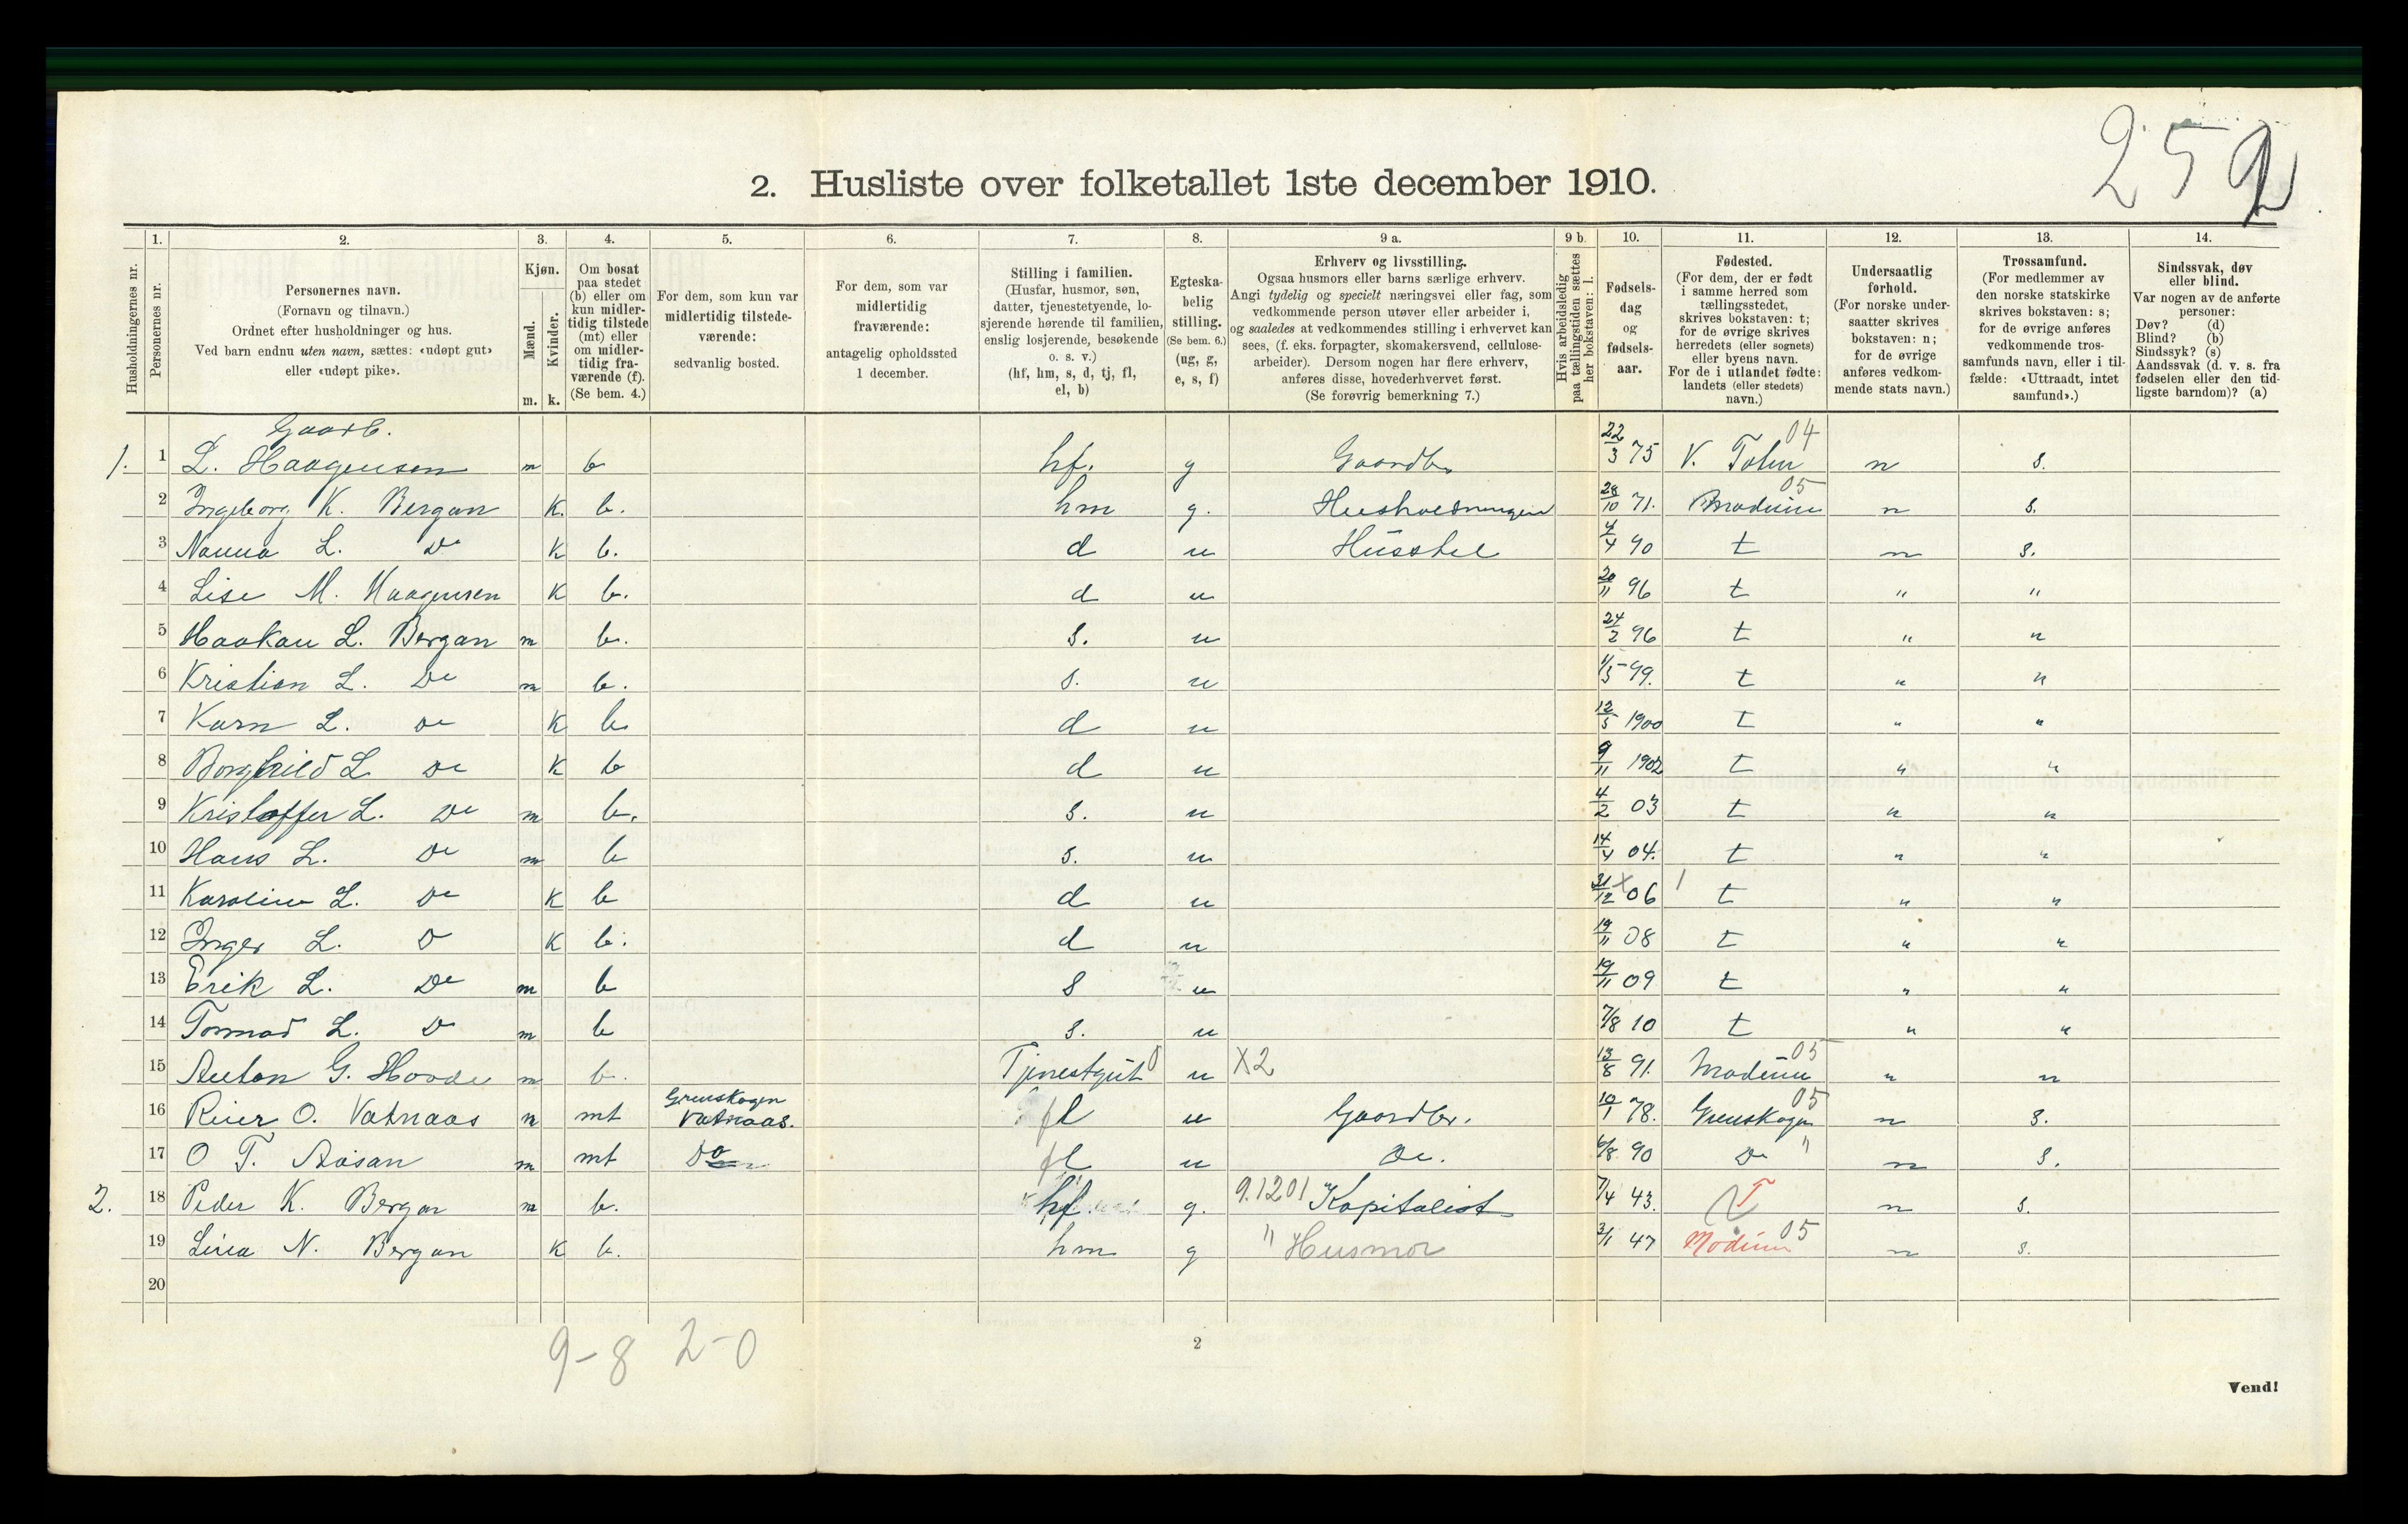 252
2. Husliste over folketallet 1ste december 1910.
Husholdningernes nr.
1. Personernes nr.
2. Personernes navn.
(Fornavn og tilnavn.)
Ordnet efter husholdninger og hus.
Ved barn endnu uten navn, sættes: «udøpt gut»
eller «udøpt pike».
3. Kjøn.
Mænd. m.
Kvinder. k.
4. Om bosat
paa stedet
(b) eller om
kun midler-
tidig tilstede
(mt) eller
om midler-
tidig fra-
værende (f).
(Se bem. 4.)
5. For dem, som kun var
midlertidig tilstede-
værende:
sedvanlig bosted.
6. For dem, som var
midlertidig
fraværende:
antagelig opholdssted
1 december.
7. Stilling i familien.
(Husfar, husmor, søn,
datter, tjenestetyende, lo-
sjerende hørende til familien,
enslig losjerende, besøkende
o. s. v.)
(hf, hm, s, d, tj, fl,
el, b)
8. Egteska-
belig
stilling.
(Se bem. 6.)
(ug, g,
e, s, f)
9 a. Erhverv og livsstilling.
Ogsaa husmors eller barns særlige erhverv.
Angi tydelig og specielt næringsvei eller fag, som
vedkommende person utøver eller arbeider i,
og saaledes at vedkommendes stilling i erhvervet kan
sees, (f. eks. forpagter, skomakersvend, cellulose-
arbeider). Dersom nogen har flere erhverv,
anføres disse, hovederhvervet først.
(Se forøvrig bemerkning 7.)
9 b. Hvis arbeidsledig
paa tællingstiden sættes
her bokstaven: l.
10. Fødsels-
dag
og
fødsels-
aar.
11. Fødested.
(For dem, der er født
i samme herred som
tællingsstedet,
skrives bokstaven: t;
for de øvrige skrives
herredets (eller sognets)
eller byens navn.
For de i utlandet fødte:
landets (eller stedets)
navn.)
12. Undersaatlig
forhold.
(For norske under-
saatter skrives
bokstaven: n;
for de øvrige
anføres vedkom-
mende stats navn.)
13. Trossamfund.
(For medlemmer av
den norske statskirke
skrives bokstaven: s;
for de øvrige anføres
vedkommende tros-
samfunds navn, eller i til-
fælde: «Uttraadt, intet
samfund».)
14. Sindssvak, døv
eller blind.
Var nogen av de anførte
personer:
Døv? (d)
Blind? (b)
Sindssyk? (s)
Aandssvak (d. v. s. fra
fødselen eller den tid-
ligste barndom)? (a)
Gaarb.
1. 1 L. Haagensen m b hf. g Gaardbr 22/3 75 V. Toten 04 n s.
2 Ingeborg K. Bergan K. b. hm g. Husholdningen 28/10 71. Modum 05 n s.
3 Nanna L. Do K b. d u Husstel 4/4 90 t n s.
4 Lise M. Haagensen K b. d u 20/11 96 t " "
5 Haakon L. Bergan m b. s. u 24/2 96 t " "
6 Kristian L. Do m b. s. u 1/5 99. t " "
7 Karn L. Do K b d u 12/5 1900 t " "
8 Borghild L Do K b d u 9/11 1902 t " "
9 Kristoffer L. Do m b. s. u 4/2 03 t " "
10 Hans L. Do m b s. u 14/4 04. t " "
11 Karoline L. Do K b d u 31/12 06 t " "
12 Inger L. D K b. d u 19/11 08 t " "
13 Erik L. Do m b s u 19/11 09 t " "
14 Tormod L. D m b s. u 7/8 10 t " "
15 Anton G. Hovde m b. Tjenestgut u X2 13/8 91. Modum 05 " "
Grenskogen
16 Reier O. Vatnaas m mt Vatnaas. fl u Gaardbr. 10/1 78. Grenskogen 05 n s.
17 O T. Aasan m mt Do fl u Do. 6/8 90 Do " n s.
2. 18 Peder K. Bergan m b. hf. g. 9.1201 Kapitalist 7/4 43. T n s.
19 Lina N. Bergan K b. hm g " Husmor 3/1 47 Modum 05 n s.
20
9-8 2-0
2
Vend!